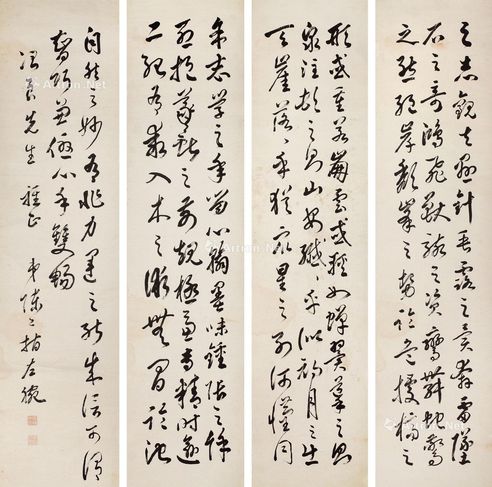 之志觀夫懸針垂露之異奔雷墜
石之奇鴻飛獸駭之資鸞舞蛇驚
之態絕岸頹峯之勢臨危據槁之
形或重若崩雲或輕如蟬翼導之則
泉注頓之則山安纖纖乎似初月之生
天崖落落乎猶眾星之列河漢同
余志學之年留心翰墨味鍾張之餘
烈挹羲獻之前規極慮專精時逾
二紀有乖入木之術無間臨池
自然之妙有非力運之能成信可謂
智巧兼優心手雙暢
先生 雅正
弟陳之指左腕